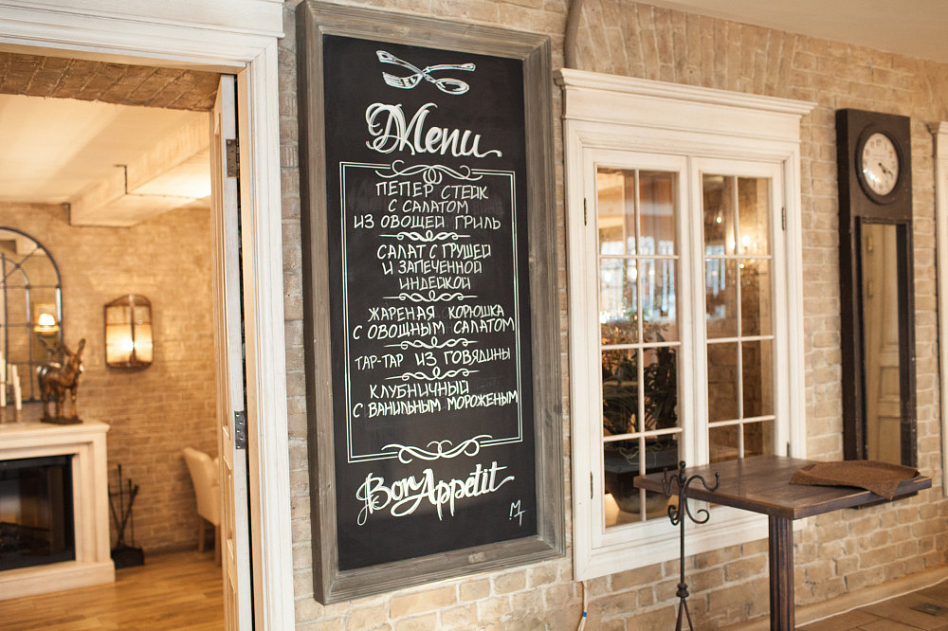 Menu
ПЕПЕР СТЕЙК
С САЛАТОМ
ИЗ ОВОЩЕЙ ГРИЛЬ
САЛАТ С ГРУШЕЙ
И ЗАПЕЧЕННОЙ
ИНДЕЙКОЙ
ЖАРЕНАЯ КОРЮШКА
С ОВОЩНЫМ САЛАТОМ
ТАР-ТАР ИЗ ГОВЯДИНЫ
КЛУБНИЧНЫЙ
С ВАНИЛЬНЫМ МОРОЖЕНЫМ
Bon Appetit
MT